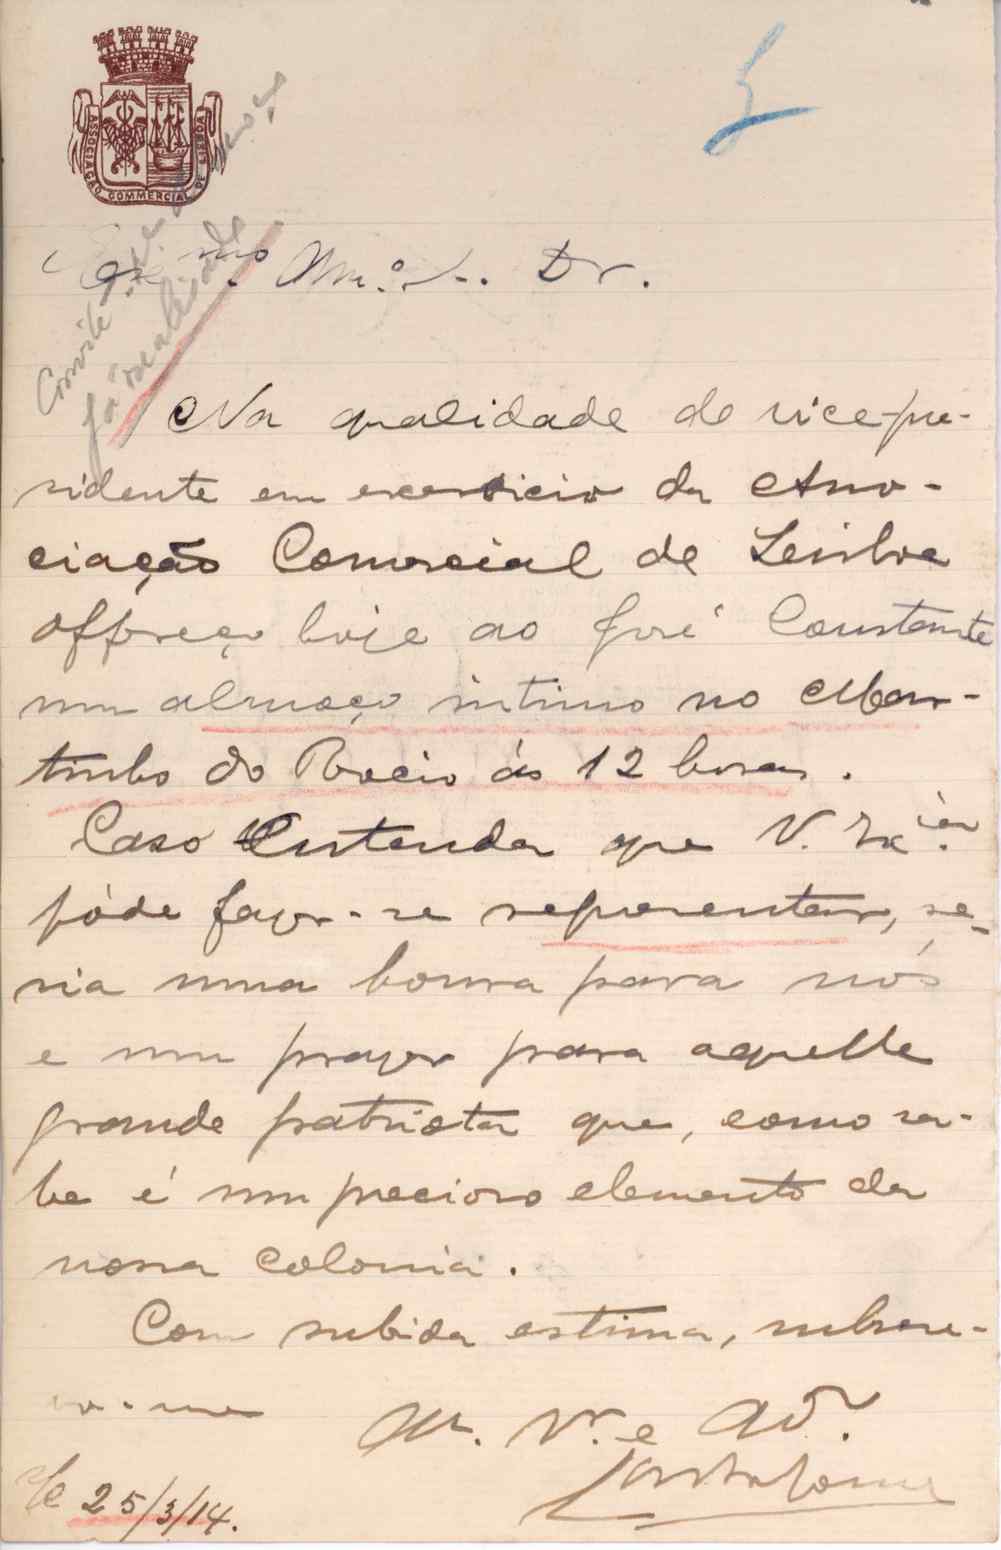 ASSOCIAÇÃO COMMERCIAL DE LISBOA
Convite
já realisado
Exmo. Am.o Sr. Dr.
Na qualidade de vice-pre-
sidente em exercicio da Asso-
ciação Comercial de Lisboa
offereço hoje ao José Constante
um almoço intimo no Mar-
tinho do Rocio ás 12 horas.
Caso Entenda que V. Ex.cia
póde fazer-se representar, se-
ria uma honra para nós
e um prazer para aquelle
grande patriota que, como sa-
be é um precioso elemento da
nossa colonia.
Com subida estima, subscre-
vo-me
M. Vr. e Ador.
25/3/14.